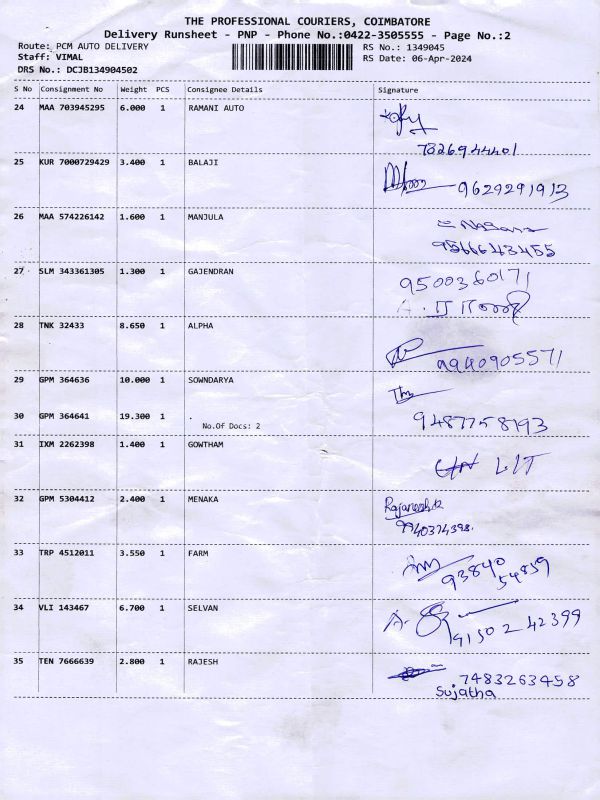 THE PROFESSIONAL COURIERS, COIMBATORE
Delivery Runsheet - PNP - Phone No.:0422-3505555 - Page No.:2
Route: PCM AUTO DELIVERY RS No.: 1349045
Staff: VIMAL RS Date: 06-Apr-2024
DRS No.: DCJB134904502
S No Consignment No Weight PCS Consignee Details Signature
24 MAA 703945295 6.000 1 RAMANI AUTO
7826944401
25 KUR 7000729429 3.400 1 BALAJI
9629291913
26 MAA 574226142 1.600 1 MANJULA
9566643455
27 SLM 343361305 1.300 1 GAJENDRAN 9500360171
28 TNK 32433 8.650 1 ALPHA
9940905571
29 GPM 364636 10.000 1 SOWNDARYA
30 GPM 364641 19.300 1 . 9487758193
No.Of Docs: 2
31 IXM 2262398 1.400 1 GOWTHAM
LIT
32 GPM 5304412 2.400 1 MENAKA
9940374398.
33 TRP 4512011 3.550 1 FARM
93840
54859
34 VLI 143467 6.700 1 SELVAN
9150242399
35 TEN 7666639 2.800 1 RAJESH
7483263458
Sujatha